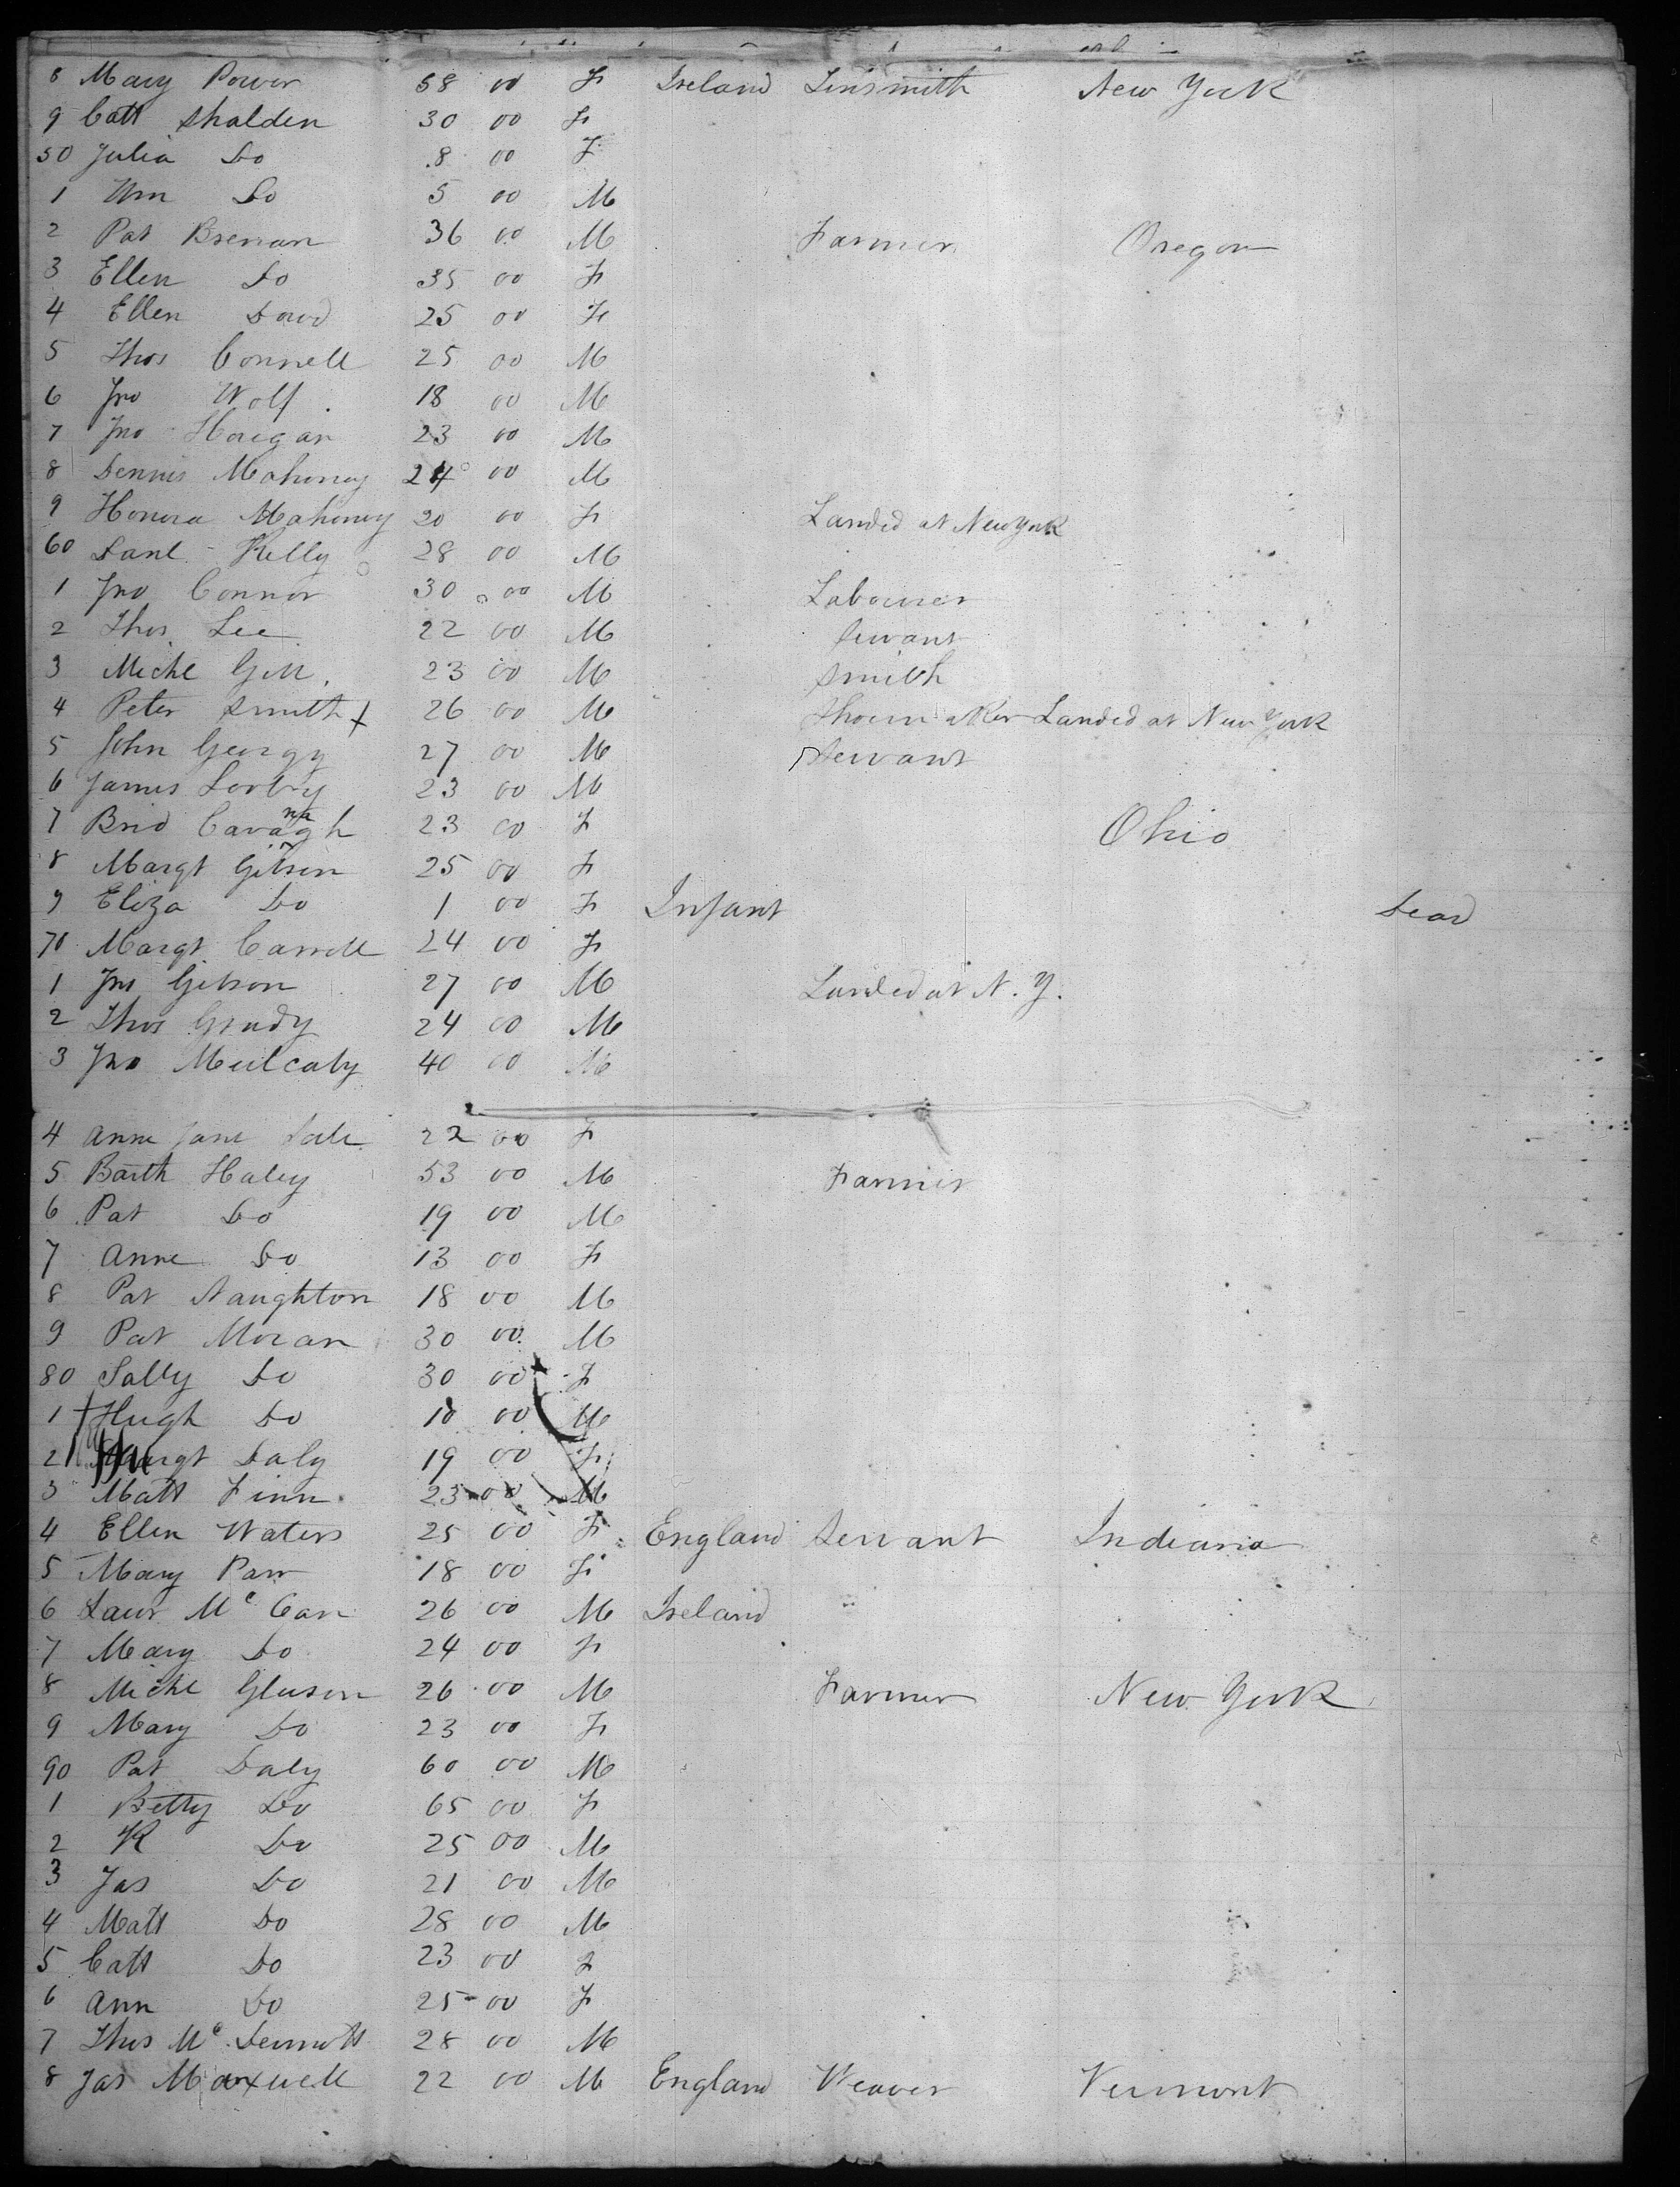 8 Mary Power 58 00 F Ireland Tinsmith New York
9 Cath Shalden 30 00 F
50 Julia Do 8 00 F
1 Wm Do 5 00 M
2 Pat Brenan 36 00 M Farmer Oregon
3 Ellen Do 35 00 F
4 Ellen Dowd 25 00 F
5 Thos Connell 25 00 M
6 Jno Wolf 18 00 M
7 Jno Horigan 23 00 M
8 Dennis Mahoney 24 00 M
9 Honora Mahoney 20 00 F Landed at New York
60 Danl Kelly 28 00 M
1 Jno Connor 30 00 M Labourer
2 Thos Lee 22 00 M Servant
3 Michl Gill 23 00 M Smith
4 Peter Smith 26 00 M Shoemaker Landed at New York
5 John Georgy 27 00 M Servant
6 James 23 00 M
7 Brid Cavanagh 23 00 F Ohio
8 Margt Gibson 25 00 F
9 Eliza Do 1 00 F Infant Dead
70 Margt Carroll 24 00 F
1 Jno Gibson 27 00 M Landed at N.Y.
2 Thos Grady 24 00 M
3 Jno Mulcahy 40 00 M
4 Anne Jane 22 00 F
5 Barth Haley 53 00 M Farmer
6 Pat Do 19 00 M
7 Anne Do 13 00 F
8 Pat Naughton 18 00 M
9 Pat Moran 30 00 M
80 Sally Do 30 00 F
1 Hugh Do 10 00 M
2 Margt Daly 19 00 F
3 Matt Finn 23 00 M
4 Ellen Waters 25 00 F England Servant Indiana
5 Mary Parr 18 00 F
6 Laur Mc Can 26 00 M Ireland
7 Mary Do 24 00 F
8 Michl Gleeson 26 00 M Farmer New York
9 Mary Do 23 00 F
90 Pat Daly 60 00 M
1 Betty Do 65 00 F
2 K Do 25 00 M
3 Jas Do 21 00 M
4 Matt Do 28 00 M
5 Cath Do 23 00 F
6 Ann Do 25 00 F
7 Thos Mc Dermott 28 00 M
8 Jas Maxwell 22 00 M England Weaver Vermont